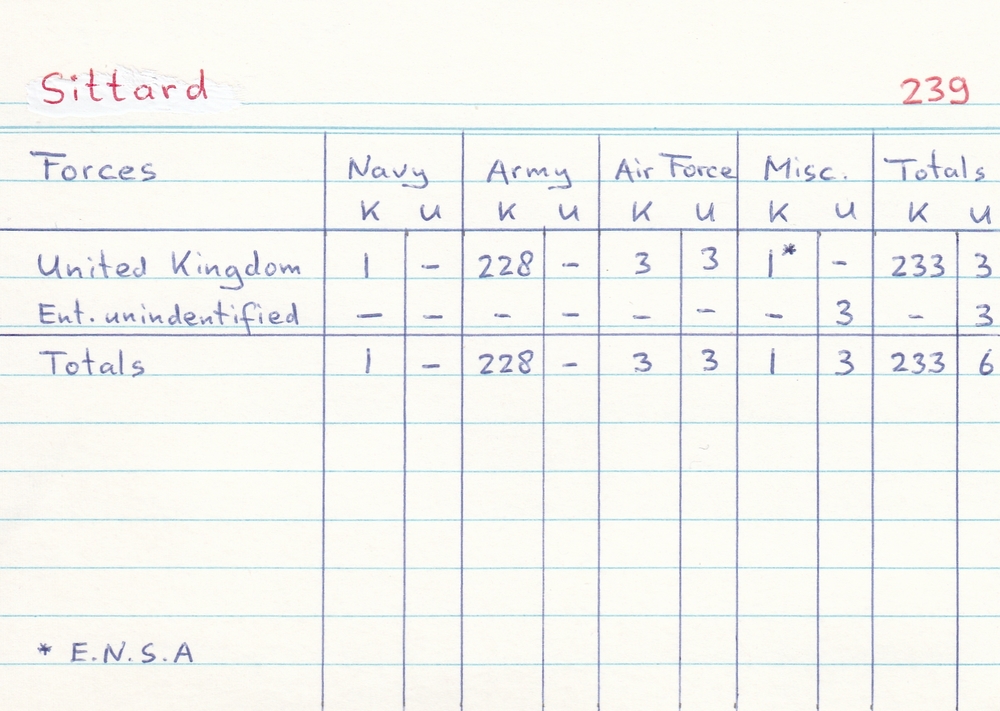 Sittard 239
Forces Navy Army Air Force Misc. Totals
K U K U K U K U K U
United Kingdom 1 - 228 - 3 3 1* - 233 3
Ent. unindentified - - - - - - - 3 - 3
Totals 1 - 228 - 3 3 1 3 233 6
* E.N.S.A